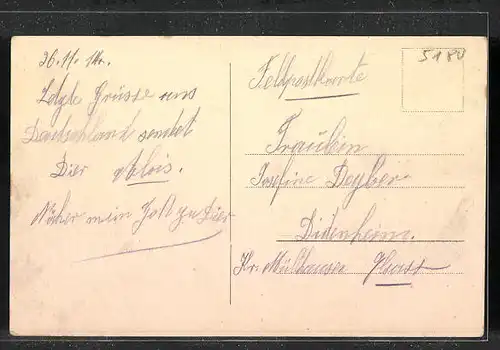 26.11.14.
Letzte Grüsse aus
Deutschland sendet
Dier Alois.
Näher mein Gott zu Dier
5180
Feldpostkarte
Fräulein
Josefine Deyber
Didenheim.
Kr. Mülhausen Elsass